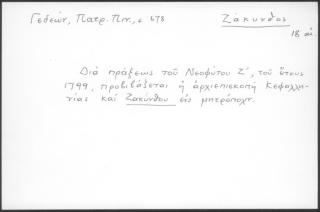 Γεδεών, Πατρ. Πιν., σ. 678
Ζάκυνθος
18 αἰ.
Διά πράξεως τοῦ Νεοφύτου Ζ', τοῦ ἔτους
1799, προβιβάζεται ἡ ἀρχιεπισκοπή Κεφαλλη-
νίας καί Ζακύνθου εἰς μητρόπολιν.